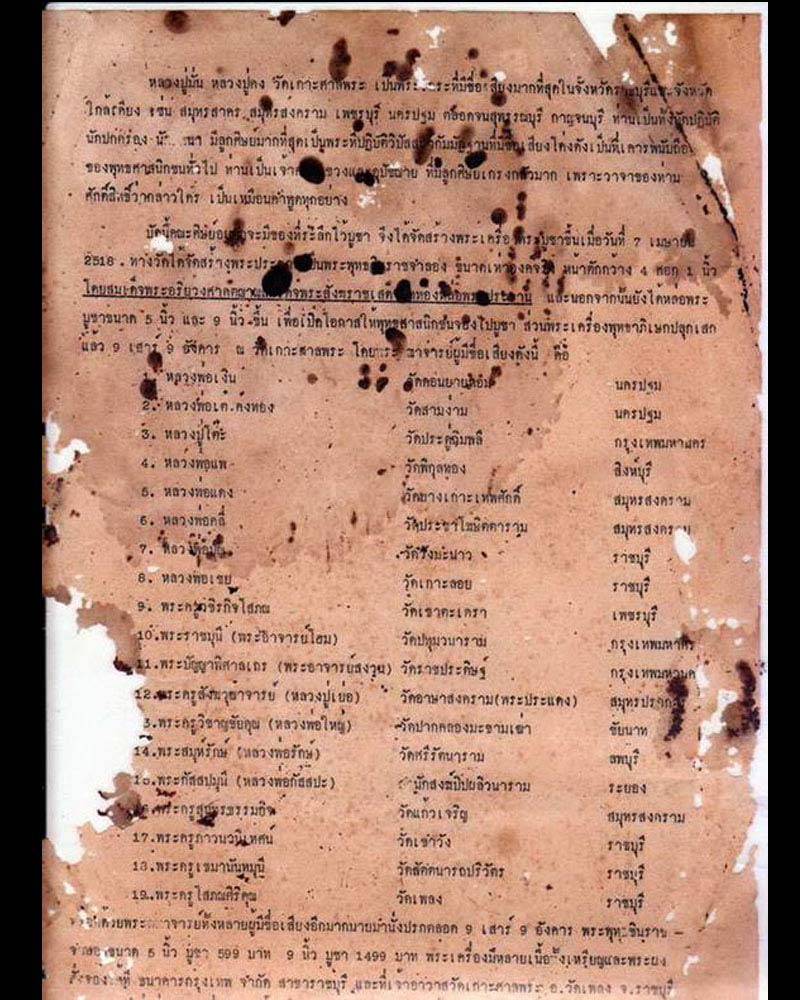 หลวงปู่มั่น หลวงปู่คง วัดเกาะศาลพระ เป็นพระ ระที่มีชื่อเสียงมากที่สุดในจังหวัดราชบุรีและจังหวัด
ใกล้เคียง เช่น สมุทรสาคร สมุทรสงคราม เพชรบุรี นครปฐม ตลอดจนสุพรรณบุรี กาญจนบุรี ท่านเป็นทั้งนักปฏิบัติ
นักปกครอง มีลูกศิษย์มากที่สุดเป็นพระที่ปฏิบัติวิปัสสนากัมมัฏฐานที่มีชื่อเสียงโด่งดังเป็นที่เคารพนับถือ
ของพุทธศาสนิกชนทั่วไป ท่านเป็นเจ้าคณะแขวงและอุปัชฌาย์ ที่มีลูกศิษย์เกรงกลัวมาก เพราะวาจาของท่าน
ศักดิ์สิทธิ์ว่ากล่าวใคร เป็นเหมือนคำพูดทุกอย่าง
บัดนี้คณะศิษย์ จะมีของที่ระลึกไว้บูชา จึงได้จัดสร้างพระเครื่อง พระบูชาขึ้นเมื่อวันที่ 7 เมษายน
2518 ทางวัดได้จัดสร้างพระประธานเป็นพระพุทธชินราชจำลอง ขนาดเท่าองค์จริง หน้าตักกว้าง 4 ศอก 1 นิ้ว
โดยสมเด็จพระอริยวงศาคตญาณสมเด็จพระสังฆราชเสด็จเททองหล่อพระประธานนี้ และนอกจากนั้นยังได้หล่อพระ
บูชาขนาด 5 นิ้ว และ 9 นิ้ว ขึ้น เพื่อเปิดโอกาสให้พุทธศาสนิกชนจองไปบูชา ส่วนพระเครื่องพุทธาภิเษกปลุกเสก
แล้ว 9 เสาร์ 9 อังคาร ณ วัดเกาะศาลพระ โดยพระอาจารย์ผู้มีชื่อเสียงดังนี้ คือ
1. หลวงพ่อเงิน วัดดอนยายหอม นครปฐม
2. หลวงพ่อเต๋ คงทอง วัดสามง่าม นครปฐม
3. หลวงปู่โต๊ะ วัดประดู่ฉิมพลี กรุงเทพมหานคร
4. หลวงพ่อแพ วัดพิกุลทอง สิงห์บุรี
5. หลวงพ่อแดง วัดบางเกาะเทพศักดิ์ สมุทรสงคราม
6. หลวงพ่อคลี่ วัดประชาโฆสิตาราม สมุทรสงคราม
7. หลวงพ่อ วัดวังมะนาว ราชบุรี
8. หลวงพ่อเชย วัดเกาะลอย ราชบุรี
9. พระครูวชิรกิจโสภณ วัดเขาตะเครา เพชรบุรี
10.พระราชมุนี (พระอาจารย์โฮม) วัดปทุมวนาราม กรุงเทพมหานคร
11.พระปัญญาพิศาลเถร (พระอาจารย์สงวน) วัดราชประดิษฐ์ กรุงเทพมหานคร
12.พระครูสังฆวุฒาจารย์ (หลวงปู่เย่อ) วัดอาษาสงคราม(พระประแดง) สมุทรปราการ
3.พระครูวิชาญชัยคุณ (หลวงพ่อใหญ่) วัดปากคลองมะขามเฒ่า ชัยนาท
14.พระสมุห์รักษ์ (หลวงพ่อรักษ์) วัดศรีรัตนาราม ลพบุรี
15.พระกัสสปมุนี (หลวงพ่อกัสสปะ) สำนักสงฆ์ปิปผลิวนาราม ระยอง
16.พระครูสุนทรธรรมกิจ วัดแก้วเจริญ สมุทรสงคราม
17.พระครูภาวนวนิเทศน์ วัดเขาวัง ราชบุรี
18.พระครูเขมานันทมุนี วัดสัตตนารถปริวัตร ราชบุรี
19.พระครูโสภณศิริคุณ วัดเพลง ราชบุรี
ด้วยพระอาจารย์ทั้งหลายผู้มีชื่อเสียงอีกมากมายมานั่งปรกตลอด 9 เสาร์ 9 อังคาร พระพุทธชินราช –
จำลองขนาด 5 นิ้ว บูชา 599 บาท 9 นิ้ว บูชา 1499 บาท พระเครื่องมีหลายเนื้อทั้งเหรียญและพระผง
สั่งจองได้ที่ ธนาคารกรุงเทพ จำกัด สาขาราชบุรี และที่เจ้าอาวาสวัดเกาะศาลพระ อ.วัดเพลง จ.ราชบุรี